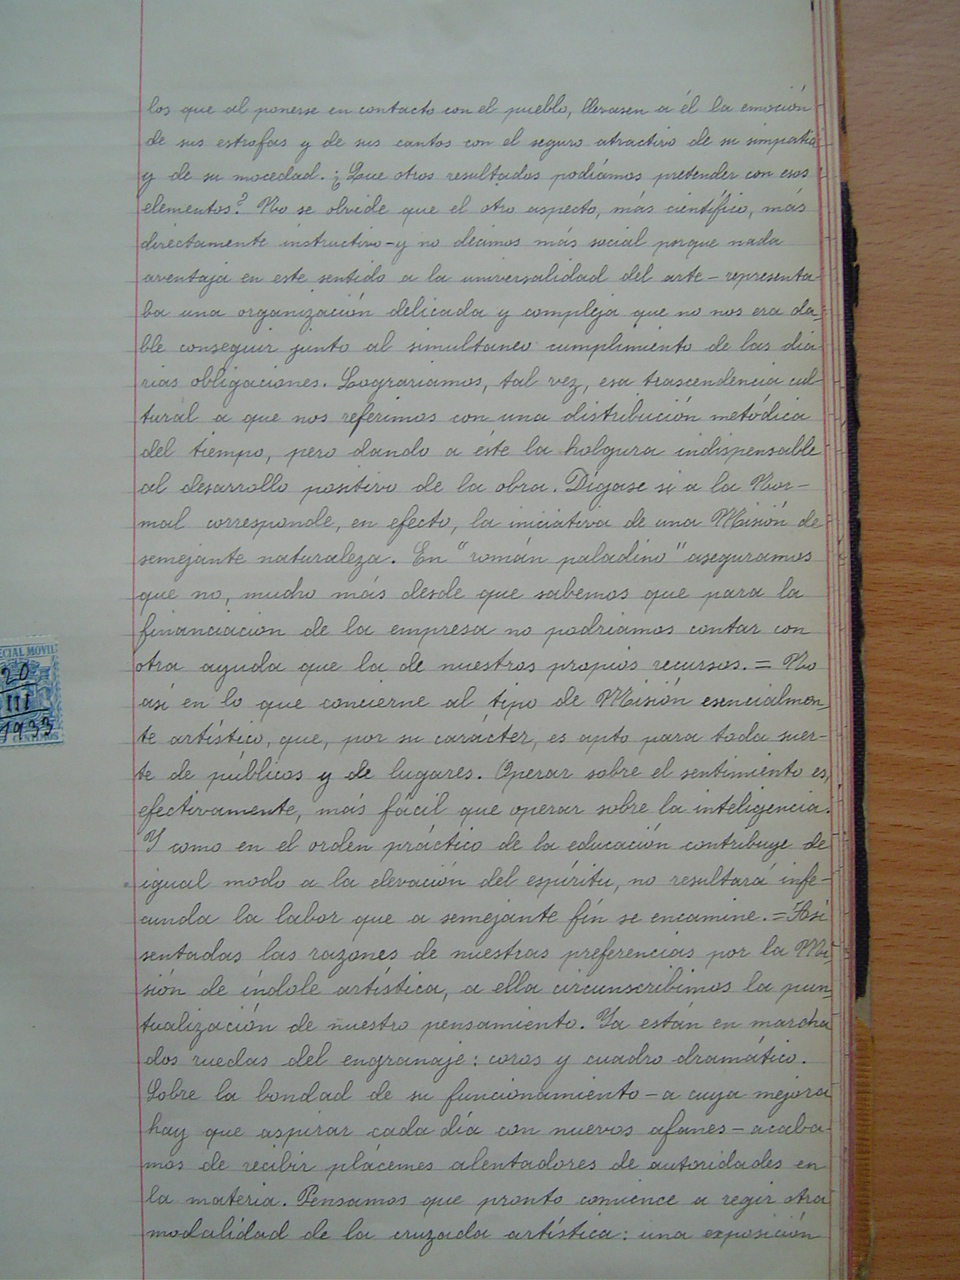 los que al ponerse en contacto con el pueblo, llevasen a él la emoción
de sus estrofas y de sus cantos con el seguro atractivo de su simpatía
y de su mocedad. ¿Que otros resultados podíamos pretender con esos
elementos? No se olvide que el otro aspecto, más científico, más
directamente instructivo-y no decimos más social porque nada
aventaja en este sentido a la universalidad del arte-representa-
ba una organización delicada y compleja que no nos era da-
ble conseguir junto al simultaneo cumplimiento de las dia
rias obligaciones. Lograriamos, tal vez, esa trascendencia cul-
tural a que nos referimos con una distribución metódica
del tiempo, pero dando a éste la holgura indispensable
al desarrollo positivo de la obra. Digase si a la Nor-
mal corresponde, en efecto, la iniciativa de una Misión de
semejante naturaleza. En "román paladino" aseguramos
que no, mucho más desde que sabemos que para la
financiacion de la empresa no podriamos contar con
otra ayuda que la de nuestros propios recursos. = No
así en lo que concierne al tipo de Misión esencialmen-
te artístico, que, por su carácter, es apto para toda suer-
te de públicos y de lugares. Operar sobre el sentimiento es,
efectivamente, más fácil que operar sobre la inteligencia.
Y como en el orden práctico de la educación contribuye de
igual modo a la elevación del espíritu, no resultará infe-
cunda la labor que a semejante fín se encamine. = Así
sentadas las razones de nuestras preferencias por la Mi-
sión de índole artística, a ella circunscribimos la pun-
tualización de nuestro pensamiento. Ya están en marcha
dos ruedas del engranaje: coros y cuadro dramático.
Sobre la bondad de su funcionamiento-a cuya mejora
hay que aspirar cada día con nuevos afanes-acaba-
mos de recibir plácemes alentadores de autoridades en
la materia. Pensamos que pronto comience a regir otra
modalidad de la cruzada artística: una exposición
ECIAL MOVIL
20
III
1933